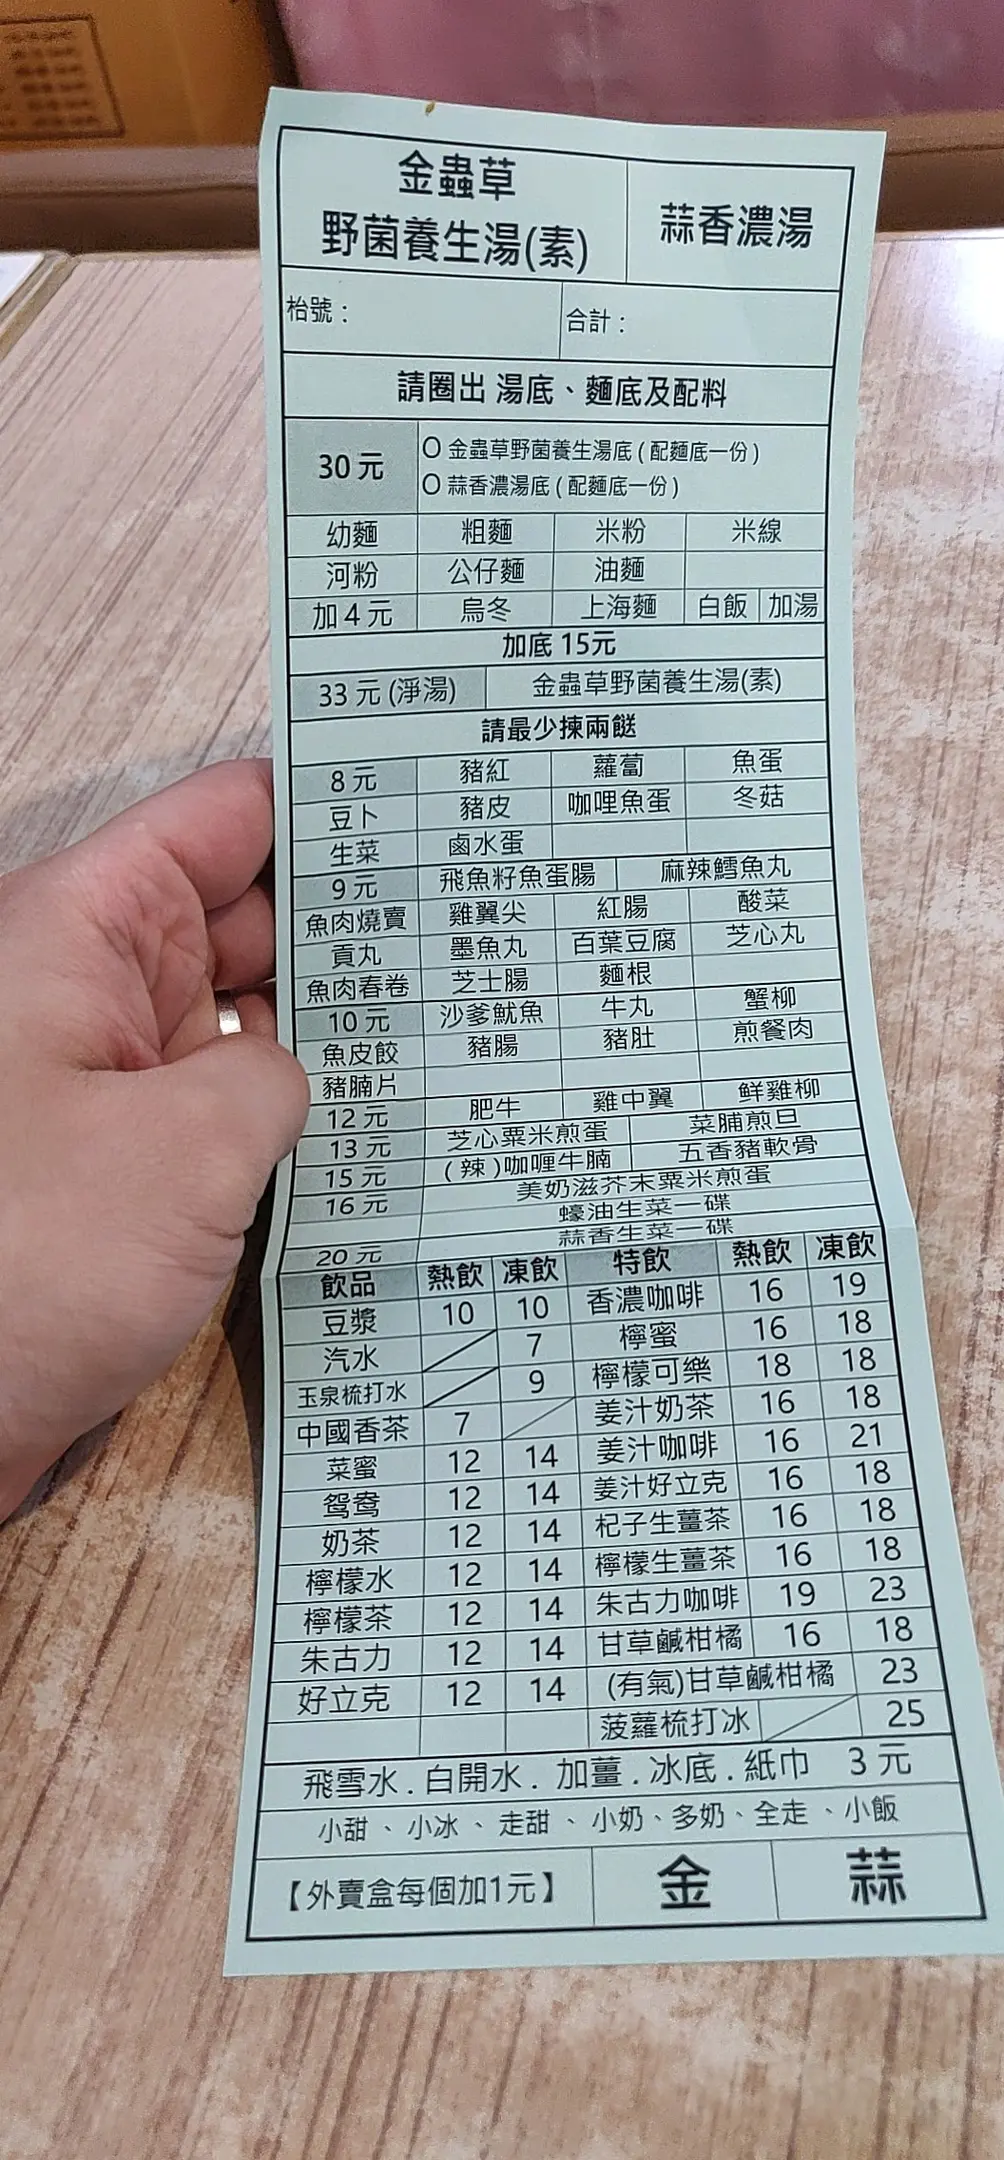 金蟲草
野菌養生湯(素)
蒜香濃湯
枱號：
合計：
請圈出 湯底、麵底及配料
30 元
O 金蟲草野菌養生湯底 ( 配麵底一份 )
O 蒜香濃湯底 ( 配麵底一份 )
幼麵 粗麵 米粉 米線
河粉 公仔麵 油麵
加 4 元 烏冬 上海麵 白飯 加湯
加底 15元
33 元 (淨湯) 金蟲草野菌養生湯(素)
請最少揀兩餸
8 元 豬紅 蘿蔔 魚蛋
豆卜 豬皮 咖哩魚蛋 冬菇
生菜 鹵水蛋
9 元 飛魚籽魚蛋腸 麻辣鱈魚丸
魚肉燒賣 雞翼尖 紅腸 酸菜
貢丸 墨魚丸 百葉豆腐 芝心丸
魚肉春卷 芝士腸 麵根
10 元 沙爹魷魚 牛丸 蟹柳
魚皮餃 豬腸 豬肚 煎餐肉
豬腩片
12 元 肥牛 雞中翼 鮮雞柳
13 元 芝心粟米煎蛋 菜脯煎旦
15 元 ( 辣 )咖喱牛腩 五香豬軟骨
16 元 美奶滋芥末粟米煎蛋
蠔油生菜一碟
20 元 蒜香生菜一碟
飲品 熱飲 凍飲 特飲 熱飲 凍飲
豆漿 10 10 香濃咖啡 16 19
汽水 7 檸蜜 16 18
玉泉梳打水 9 檸檬可樂 18 18
中國香茶 7 姜汁奶茶 16 18
菜蜜 12 14 姜汁咖啡 16 21
鴛鴦 12 14 姜汁好立克 16 18
奶茶 12 14 杞子生薑茶 16 18
檸檬水 12 14 檸檬生薑茶 16 18
檸檬茶 12 14 朱古力咖啡 19 23
朱古力 12 14 甘草鹹柑橘 16 18
好立克 12 14 (有氣)甘草鹹柑橘 23
菠蘿梳打冰 25
飛雪水 . 白開水 . 加薑 . 冰底 . 紙巾 3 元
小甜 、 小冰 、 走甜 、 小奶、多奶、全走 、小飯
【外賣盒每個加1元】 金 蒜